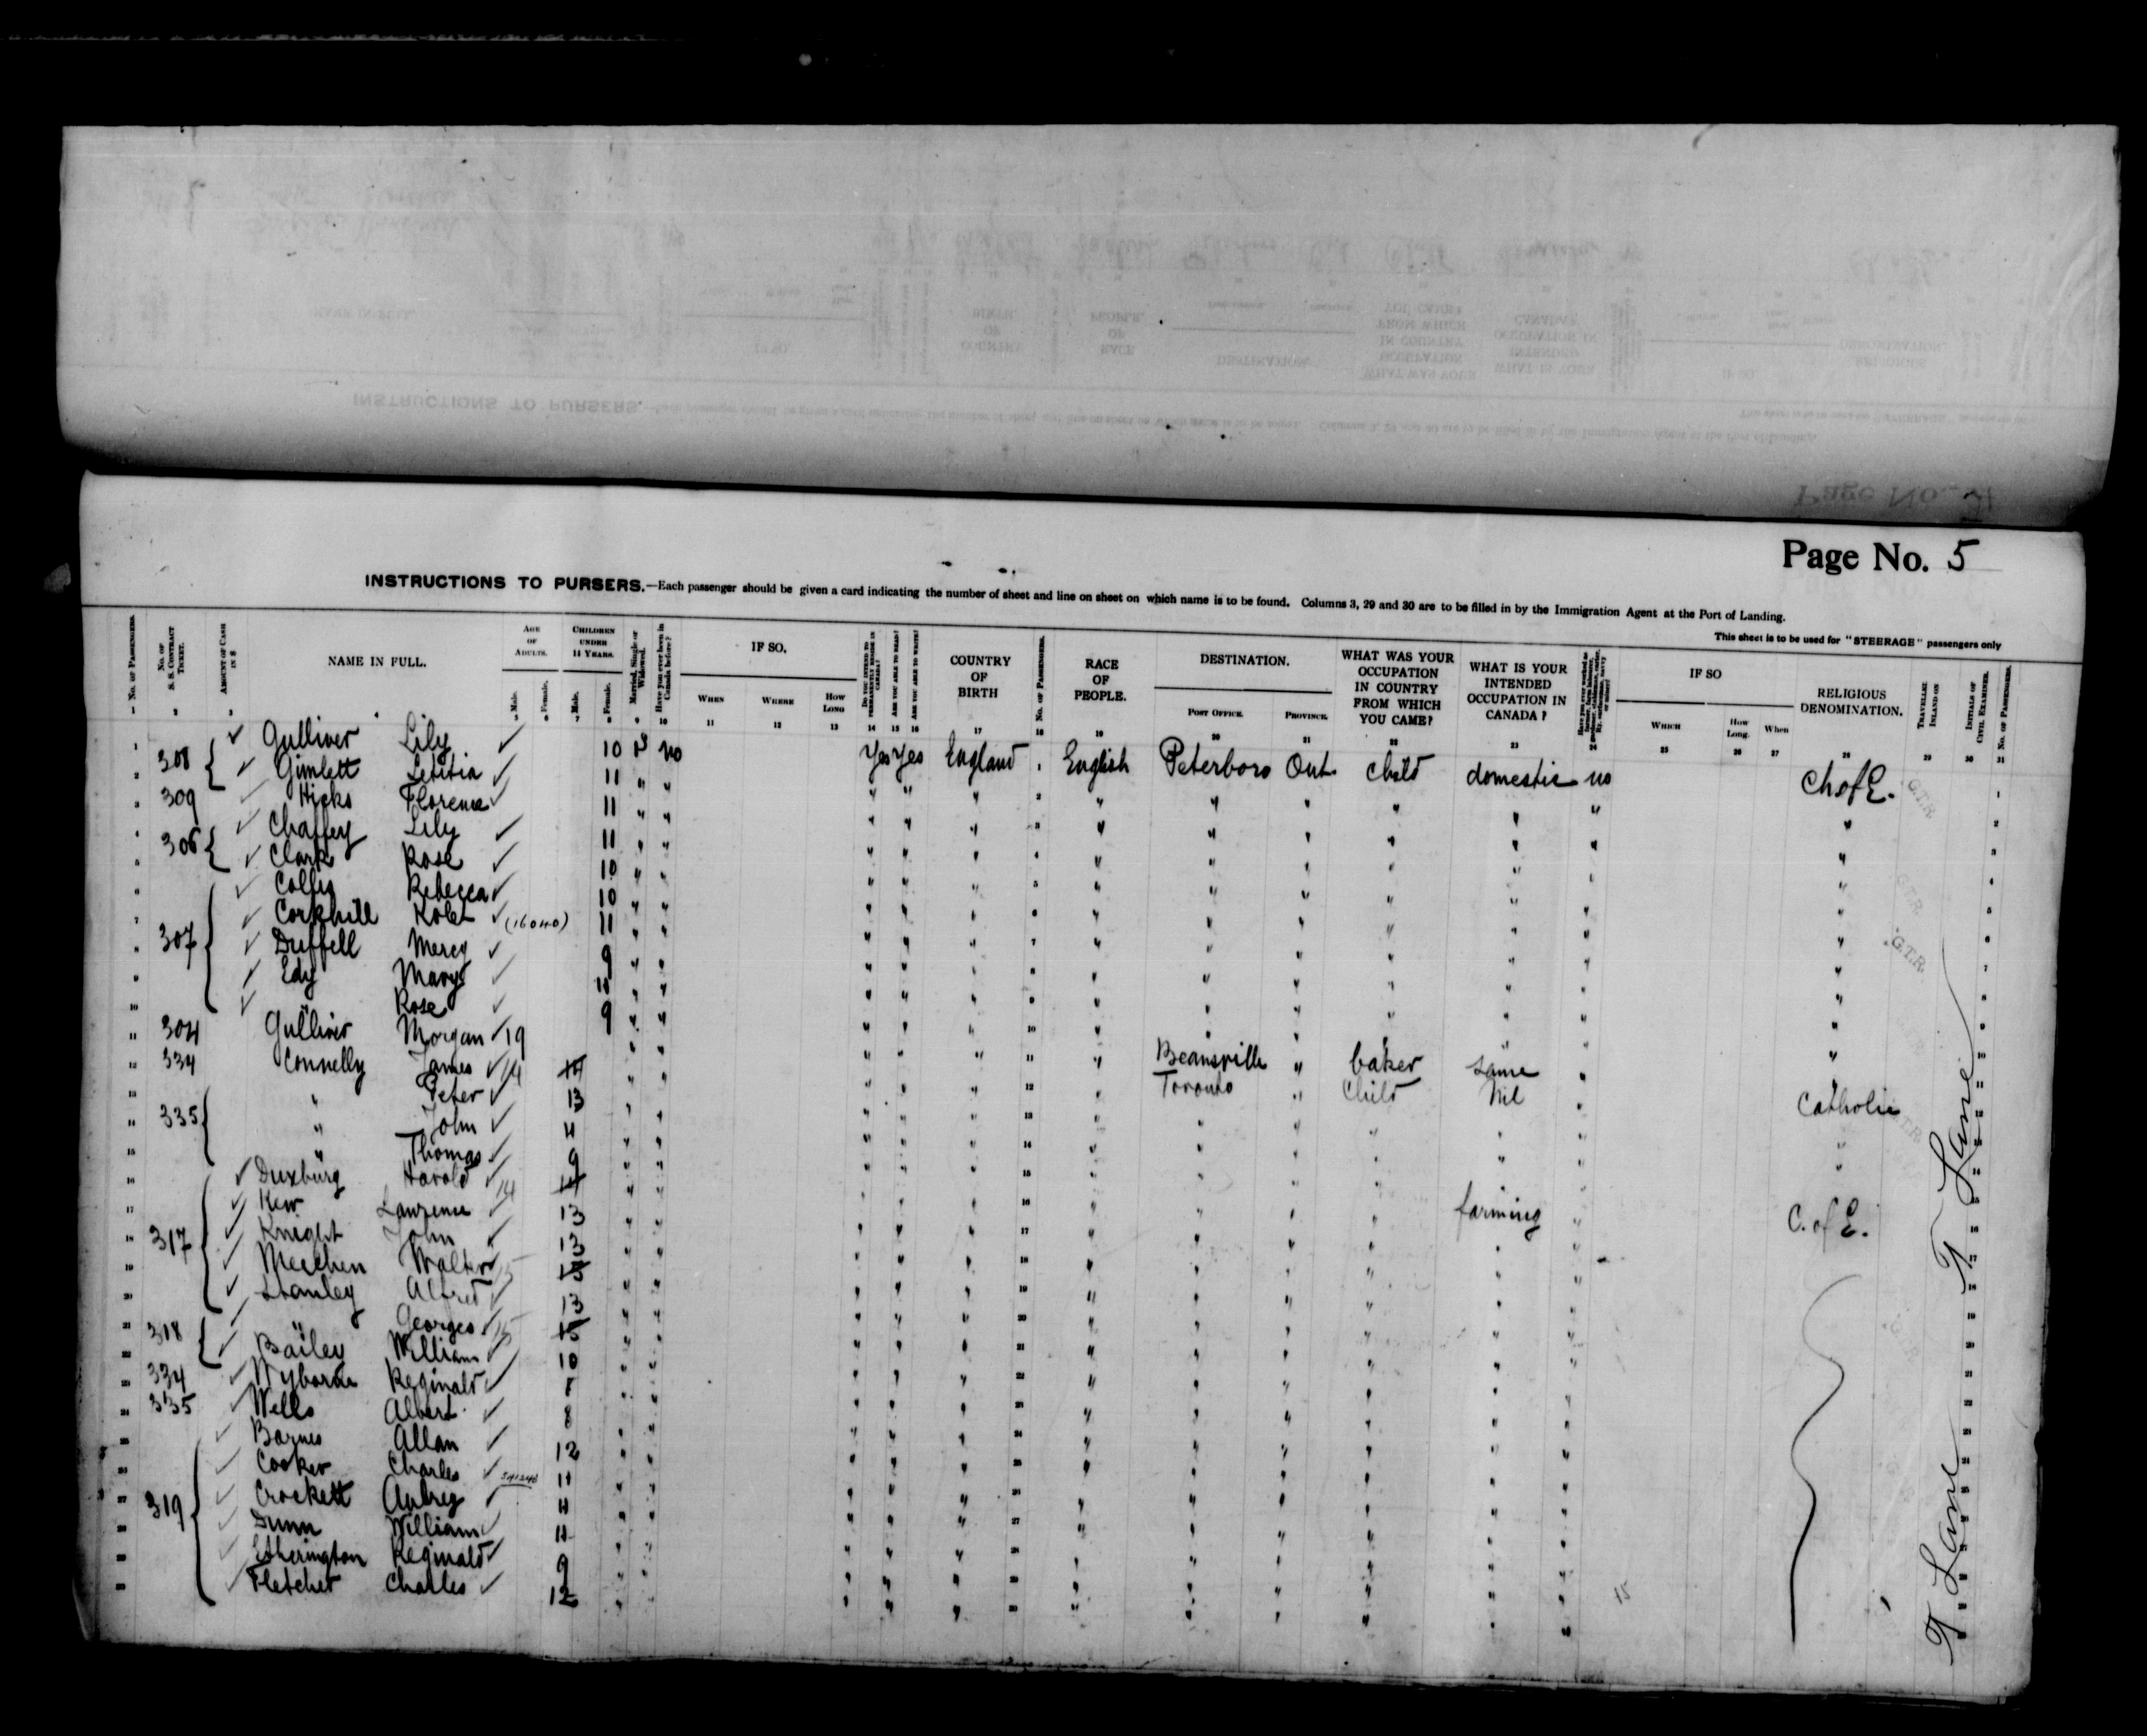 Page No. 5
INSTRUCTIONS TO PURSERS.—Each passenger should be given a card indicating the number of sheet and line on sheet on which name is to be found. Columns 3, 29 and 30 are to be filled in by the Immigration Agent at the Port of Landing.
This sheet is to be used for "STEERAGE" passengers only
No. OF PASSENGERS. No. OF S. S. CONTRACT TICKET. AMOUNT OF CASH IN $ NAME IN FULL. AGE OF ADULTS. Male. Female. CHILDREN UNDER 14 YEARS. Male. Female. Married, Single or Widowed. Have you ever been in Canada before? IF SO, WHEN WHERE HOW LONG DO YOU INTEND TO PERMANENTLY RESIDE IN CANADA? ARE YOU ABLE TO READ? ARE YOU ABLE TO WRITE? COUNTRY OF BIRTH No. OF PASSENGERS. RACE OF PEOPLE. DESTINATION. POST OFFICE. PROVINCE. WHAT WAS YOUR OCCUPATION IN COUNTRY FROM WHICH YOU CAME? WHAT IS YOUR INTENDED OCCUPATION IN CANADA? IF SO WHICH How Long. When RELIGIOUS DENOMINATION. TRAVELLED INLAND ON INITIALS OF CIVIL EXAMINER. No. OF PASSENGERS.
1 308 Gulliver Lily 10 S no Yes Yes England 1 English Peterboro Ont. child domestic no Ch of E. 1
2 Gimlett Letitia 11 " " " " " 2 " " " " " " " 2
3 309 Hicks Florence 11 " " " " " 3 " " " " " " " 3
4 306 Chaffey Lily 11 " " " " " 4 " " " " " " " 4
5 Clark Rose 10 " " " " " 5 " " " " " " " 5
6 307 Collis Rebecca 10 " " " " " 6 " " " " " " " 6
7 Corkhill (16040) 11 " " " " " 7 " " " " " " " 7
8 Duffell Mercy 9 " " " " " 8 " " " " " " " 8
9 Edy Mary 11 " " " " " 9 " " " " " " " 9
10 " Rose 9 " " " " " 10 " " " " " " " 10
11 304 Gulliver Morgan 19 " " " " " 11 " Beamsville " baker same " "
12 334 Connelly James 14 14 " " " " " 12 " Toronto " Child Nil " Catholic
13 335 " Peter 13 " " " " " 13 " " " " " " "
14 " John 11 " " " " " 14 " " " " " " "
15 " Thomas 9 " " " " " 15 " " " " " "
16 317 Duxbury Harold 14 14 " " " " " 16 " " " " farming " C. of E.
17 Kew Lawrence 13 " " " " " 17 " " " " " "
18 Knight John 13 " " " " " 18 " " " " " "
19 Meechen Walter 15 15 " " " " " 19 " " " " " "
20 Stanley Alfred 13 " " " " " 20 " " " " " "
21 318 " George 15 15 " " " " " 21 " " " " " "
22 Bailey William 10 " " " " " 22 " " " " " "
23 334 Wyborne Reginald 8 " " " " " 23 " " " " " "
24 335 Wells Albert 8 " " " " " 24 " " " " " "
25 319 Barnes Allan 12 " " " " " 25 " " " " " "
26 Cooker Charles 11 " " " " " 26 " " " " " "
27 Crockett Aubrey 11 " " " " " 27 " " " " " "
28 Dunn William 11 " " " " " 28 " " " " " "
29 Etherington Reginald 9 " " " " " 29 " " " " " "
30 Fletcher Charles 12 " " " " " 30 " " " " " "
G.T.R.
G.T.R.
G.T.R.
T Lane
T Lane
15